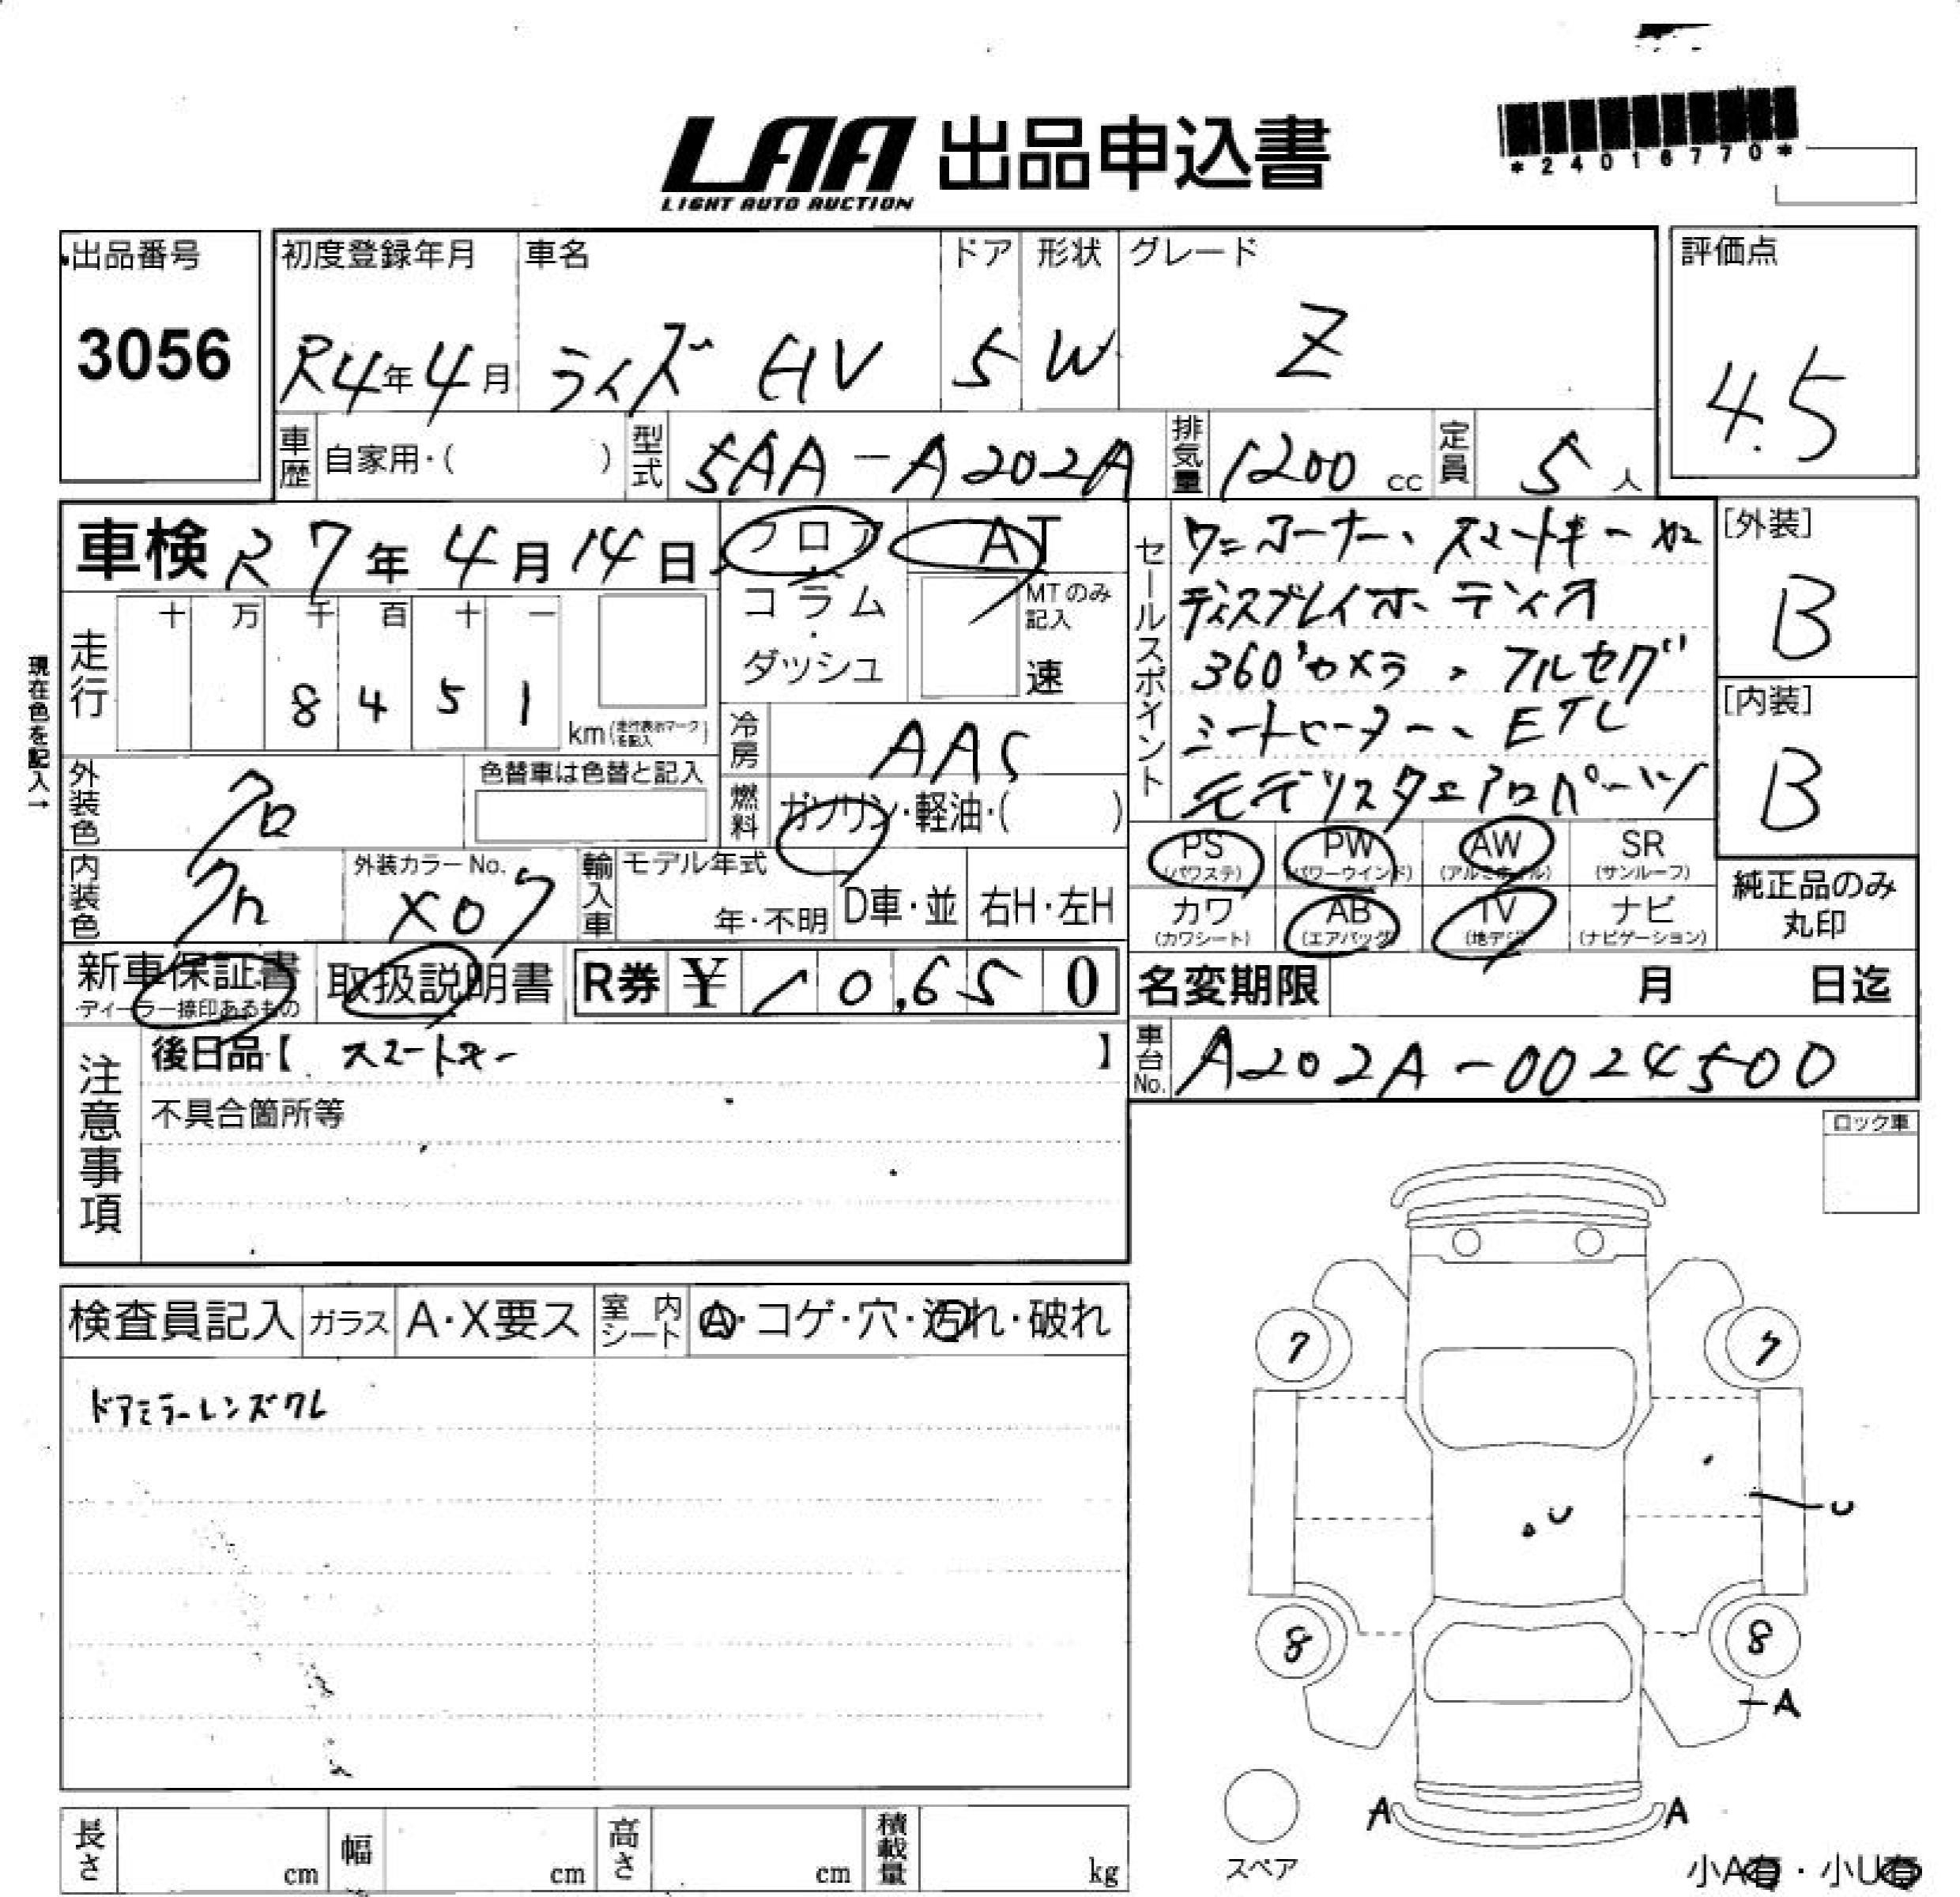 LAA 出品申込書
LIGHT AUTO AUCTION
*24016770*
出品番号
3056
初度登録年月 車名 ドア 形状 グレード
R4年4月 ライズ HV 5 W Z
評価点
4.5
車歴 自家用・( ) 型式 5AA-A202A 排気量 1200 cc 定員 5 人
車検 R7年4月14日
フロア AT
コラム
・
ダッシュ
MTのみ記入
速
走行
十 万 千 百 十 一
8 4 5 1
km(走行表示マークを記入)
現在色を記入→
冷房 AAC
外装色 クロ
色替車は色替と記入
燃料 ガソリン・軽油・( )
内装色 クロ
外装カラーNo.
X07
輸入車 モデル年式
年・不明 D車・並 右H・左H
新車保証書
ディーラー捺印あるもの
取扱説明書
R券 ¥ 10,650
セールスポイント
ワンオーナー、スマートキーX2
ディスプレイオーディオ
360°カメラ、フルセグ
シートヒーター、ETC
モデリスタエアロパーツ
[外装]
B
[内装]
B
PS
(パワステ)
PW
(パワーウインド)
AW
(アルミホイル)
SR
(サンルーフ)
カワ
(カワシート)
AB
(エアバッグ)
TV
(地デジ)
ナビ
(ナビゲーション)
純正品のみ
丸印
名変期限 月 日迄
車台No. A202A-0024500
注意事項
後日品【 スマートキー 】
不具合箇所等
ロック車
検査員記入 ガラス A・X要ス 室内シート A・コゲ・穴・汚れ・破れ
ドアミラーレンズクレ
7 7
U
U
8 8
A
A A
スペア
小A有・小U有
長さ cm 幅 cm 高さ cm 積載量 kg